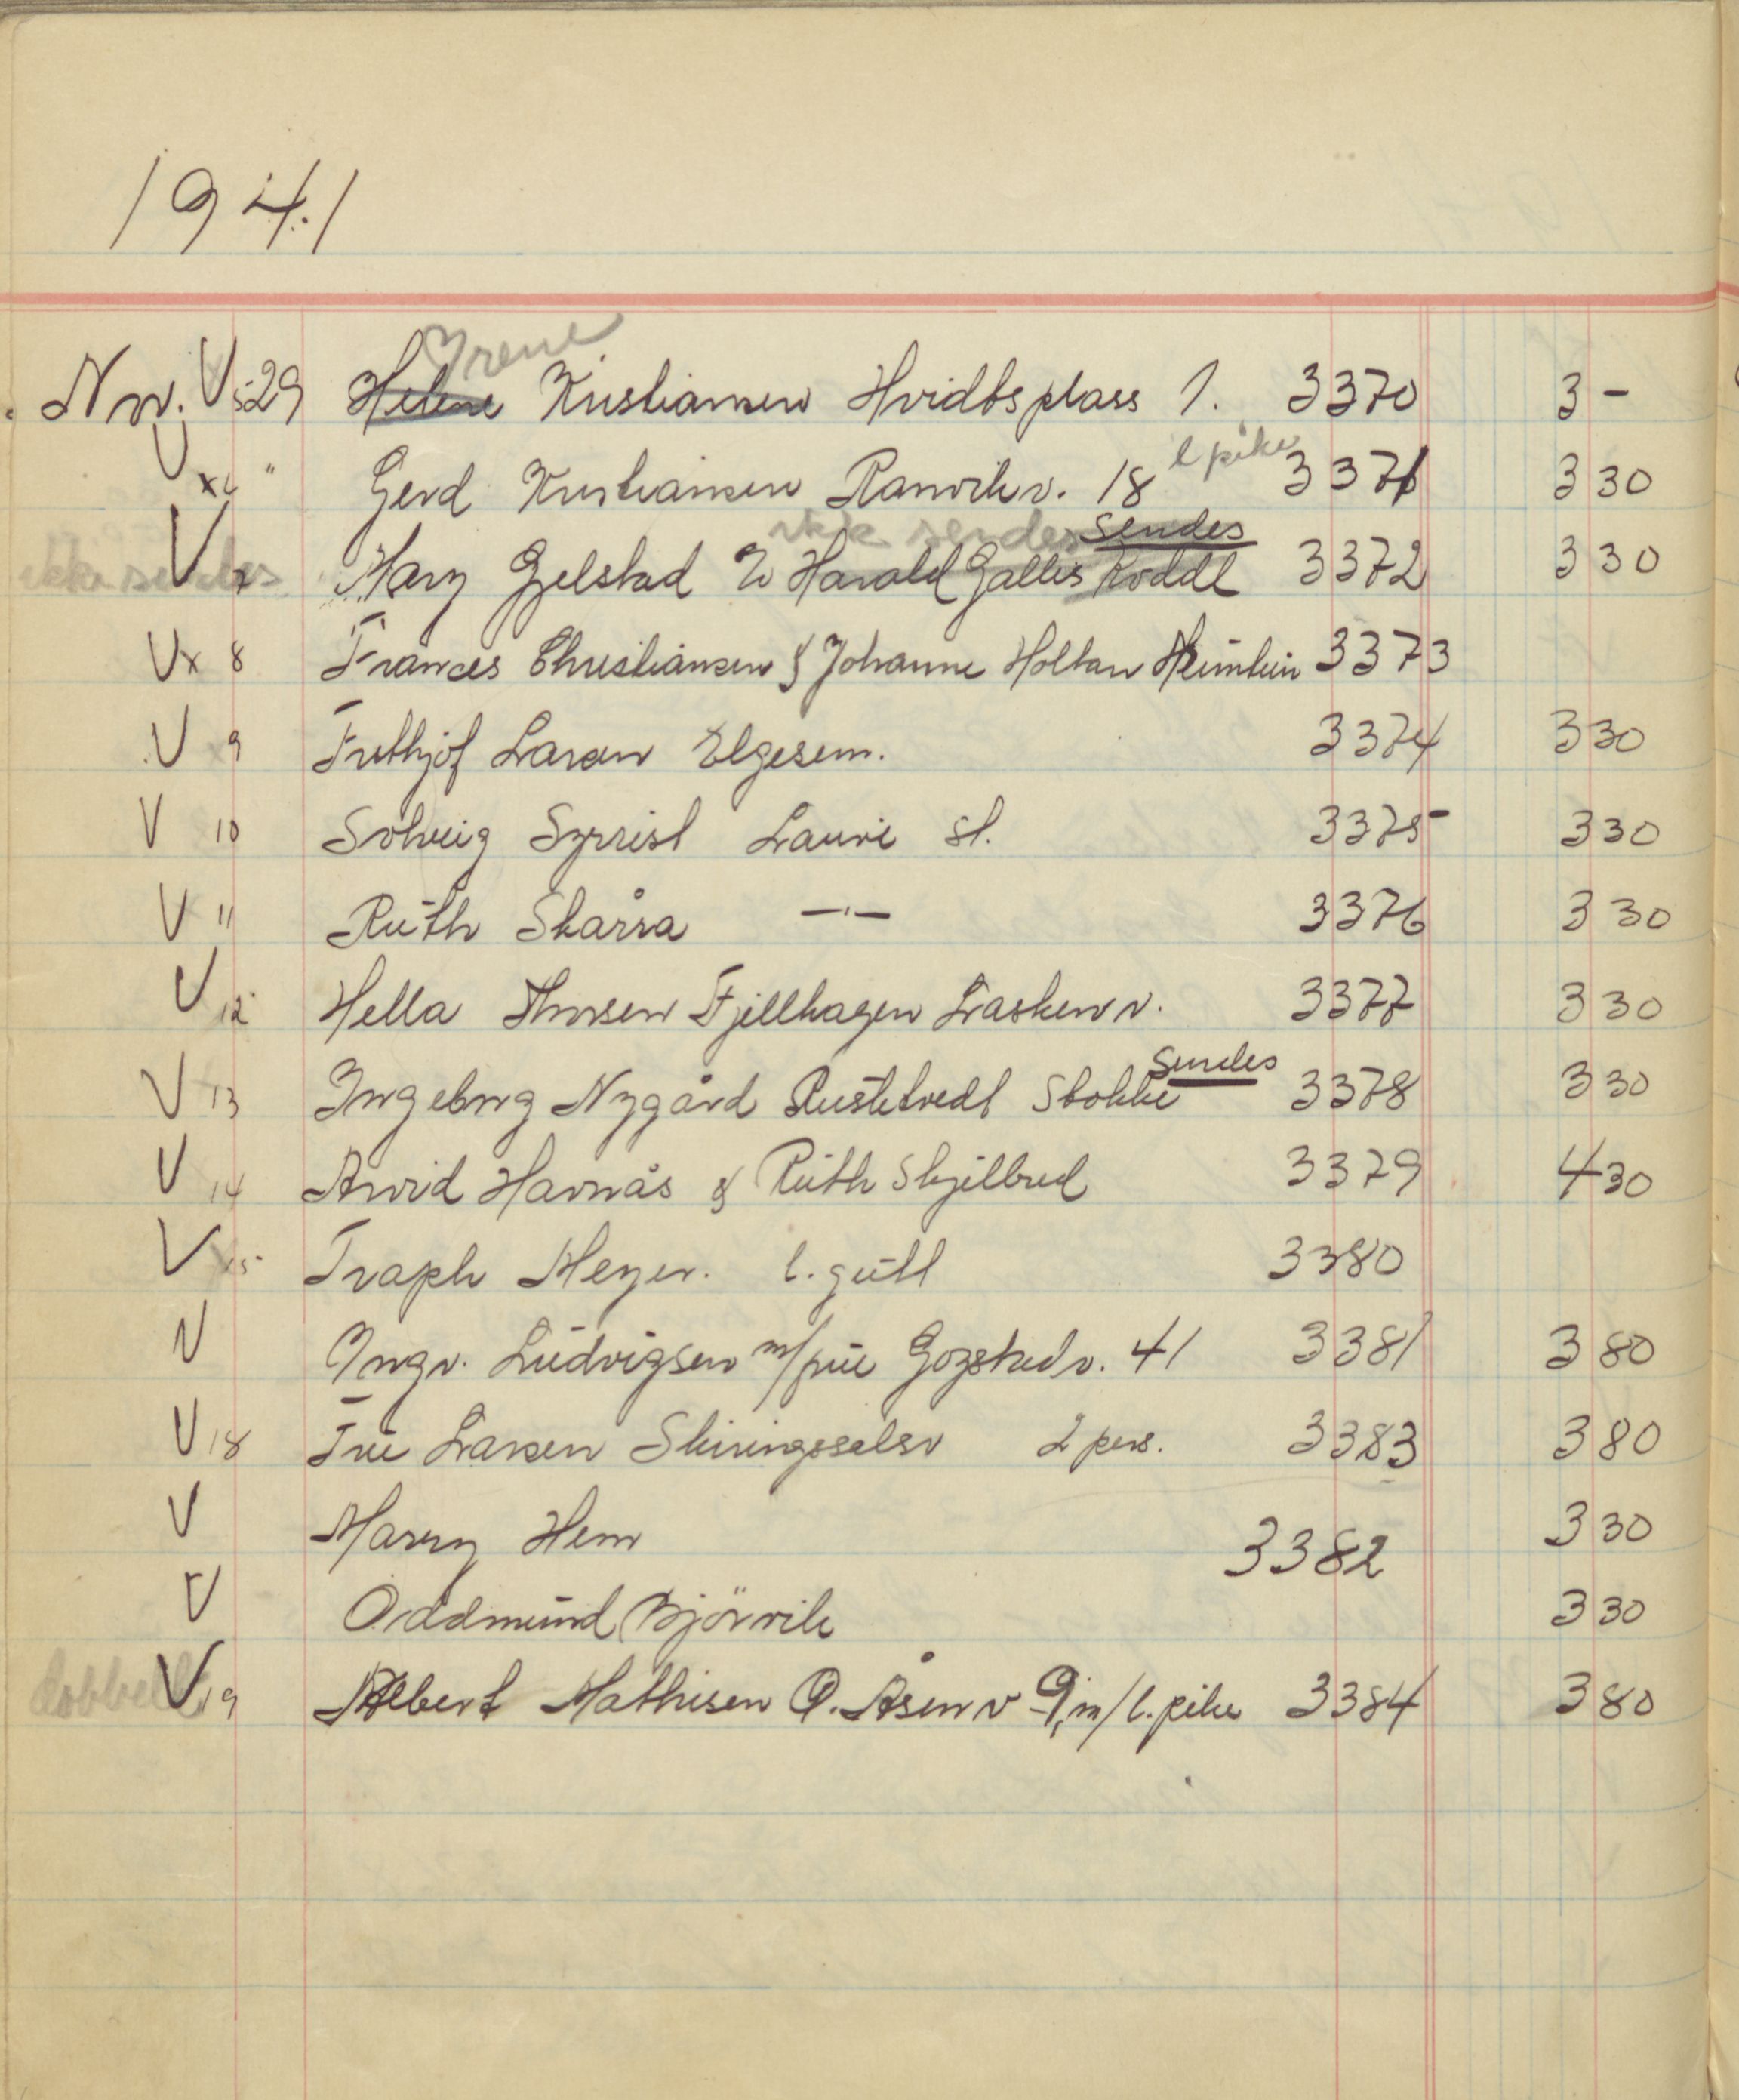 1941
Yrene
Nov. V 5 29 Helene Kristiansen Hvidtsplass 1. 3370 3 -
l pike
V x6 " Gerd Kristiansen Ranvikv. 18 3371 3 30
ikke sendes sendes
ikke sendes V 7 Mary Gjelstad Harald Galtes Kodal 3372 3 30
V x 8 Frances Christiansen & Johanne Holtan Heimtun 3373
V 9 Frithjof Larsen Elgesem. 3374 3 30
V 10 Solveig Syrrist Lauve st. 3375 3 30
V 11 Ruth Skarra —"— 3376 3 30
V 12 Hella Thorsen Fjellhagen Laskenv. 3377 3 30
sendes
V 13 Ingeborg Nygård Rustetvedt Stokke 3378 3 30
V 14 Arvid Havnås & Ruth Skjelbred 3379 4 30
V 15 Traph Meyer. l. gutt 3380
V Yngv. Ludvigsen m/frue Gogstadv. 41 3381 3 80
V 18 Fru Larsen Skiringssalsv 2 pers. 3383 3 80
V Marry Hem 3382 3 30
V Oddmund Bjørvik 3 30
dobbelt V 19 Albert Mathisen Ø. Åsenv 9, m/l. pike 3384 3 80